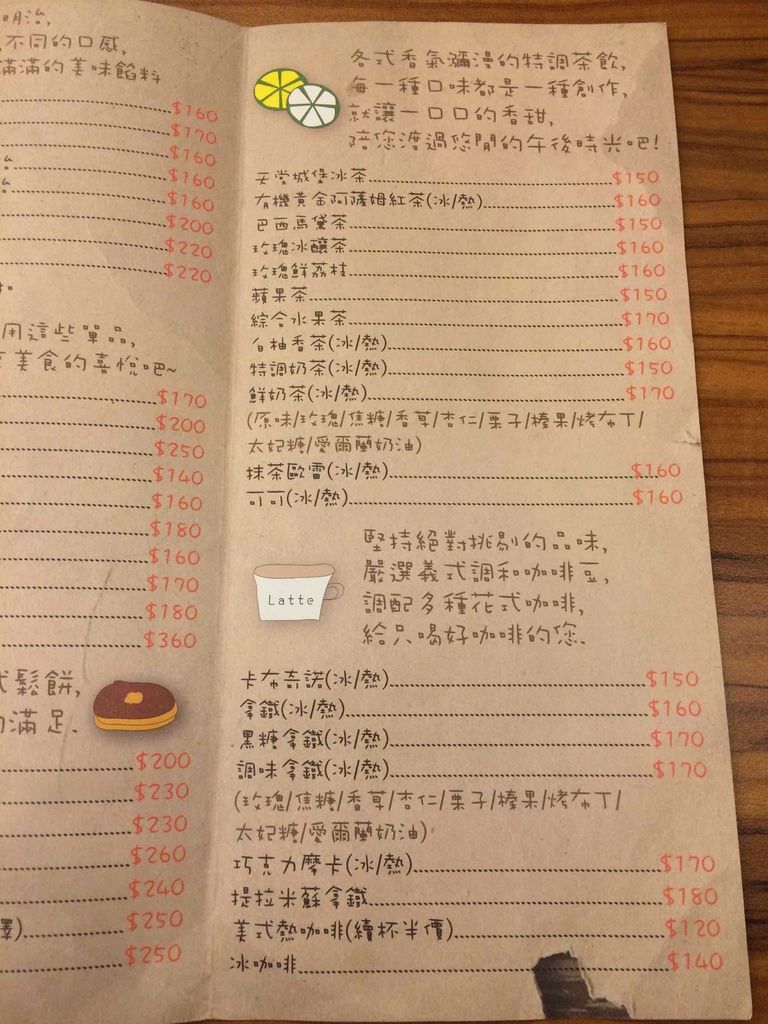 明治,
不同的口感,
滿滿的美味餡料
$160
$170
$160
$160
$160
$200
$220
$220
用這些單品,
美食的喜悅吧~
$170
$200
$250
$140
$160
$180
$160
$170
$180
$360
式鬆餅,
的滿足.
$200
$230
$230
$260
$240
擇) $250
$250
各式香氣瀰漫的特調茶飲,
每一種口味都是一種創作,
就讓一口口的香甜,
陪您渡過悠閒的午後時光吧!
天堂城堡冰茶 $150
有機黃金阿薩姆紅茶(冰/熱) $160
巴西馬黛茶 $150
玫瑰冰釀茶 $160
玫瑰鮮荔枝 $160
蘋果茶 $150
綜合水果茶 $170
白柚香茶(冰/熱) $160
特調奶茶(冰/熱) $150
鮮奶茶(冰/熱) $170
(原味/玫瑰/焦糖/香草/杏仁/栗子/榛果/烤布丁/
太妃糖/愛爾蘭奶油)
抹茶歐雷(冰/熱) $160
可可(冰/熱) $160
堅持絕對挑剔的品味,
嚴選義式調和咖啡豆,
調配多種花式咖啡,
給只喝好咖啡的您.
Latte
卡布奇諾(冰/熱) $150
拿鐵(冰/熱) $160
黑糖拿鐵(冰/熱) $170
調味拿鐵(冰/熱) $170
(玫瑰/焦糖/香草/杏仁/栗子/榛果/烤布丁/
太妃糖/愛爾蘭奶油)
巧克力摩卡(冰/熱) $170
提拉米蘇拿鐵 $180
美式熱咖啡(續杯半價) $120
冰咖啡 $140